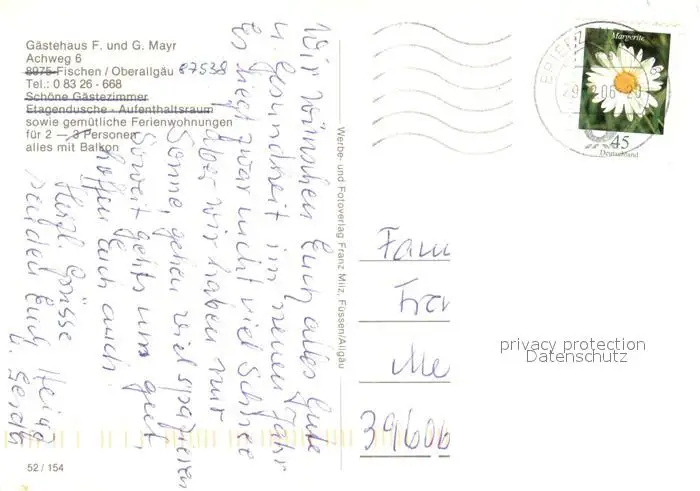 Gästehaus F. und G. Mayr
Achweg 6
8975 Fischen / Oberallgäu 87538
Tel.: 0 83 26 - 668
Schöne Gästezimmer
Etagendusche - Aufenthaltsraum
sowie gemütliche Ferienwohnungen
für 2 — 3 Personen
alles mit Balkon
Wir wünschen Euch alles Gute
u. Gesundheit im neuen Jahr
Es liegt zwar nicht viel Schnee
aber wir haben nur
Sonne, gehen viel spazieren
Soweit gehts uns gut,
hoffen Euch auch.
Herzl. Grüsse
senden Euch Heinz
u. Gerda
52 / 154
Werbe- und Fotoverlag Franz Milz, Füssen/Allgäu
Margerite
45
Deutschland
BRIEFZ
06
Fam
Fra
Me
39606
privacy protection
Datenschutz